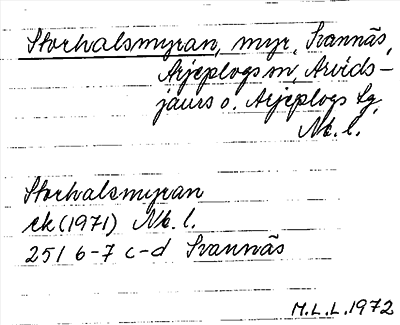 Storhalsmyran, myr, Svannäs,
Arjeplogs sn, Arvids-
jaurs o. Arjeplogs tg,
Nb. l.
Storhalsmyran
ek (1971) Nb. l.
251 6-7 c-d Svannäs
M.L.L. 1972